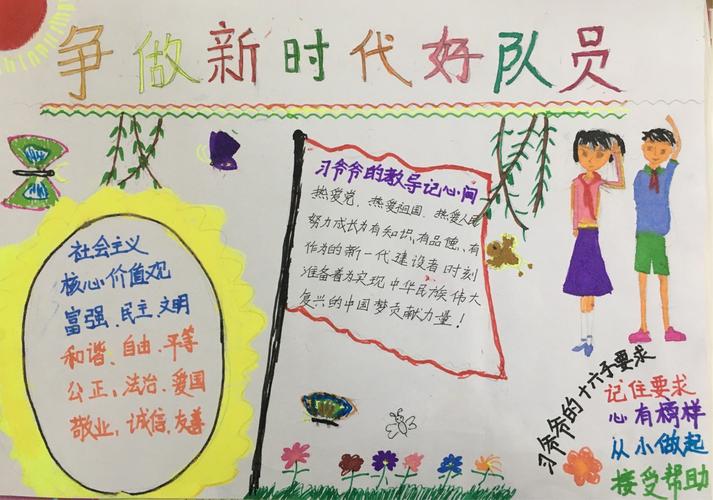 争做新时代好队员
社会主义
核心价值观
富强、民主、文明
和谐、自由、平等
公正、法治、爱国
敬业、诚信、友善
习爷爷的教导记心间
热爱党、热爱祖国、热爱人民
努力成长为有知识、有品德、有
作为的新一代建设者时刻
准备着为实现中华民族伟大
复兴的中国梦贡献力量！
习爷爷的十六字要求
记住要求
心有榜样
从小做起
接受帮助